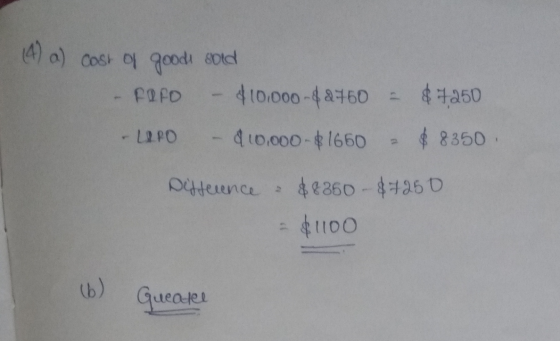 (4) a) Cost of goods sold
- FIFO - $10,000-$2750 = $7,250
- LIFO - $10,000-$1650 = $8350.
Difference = $8350-$7250
= $1100
(b) Greater